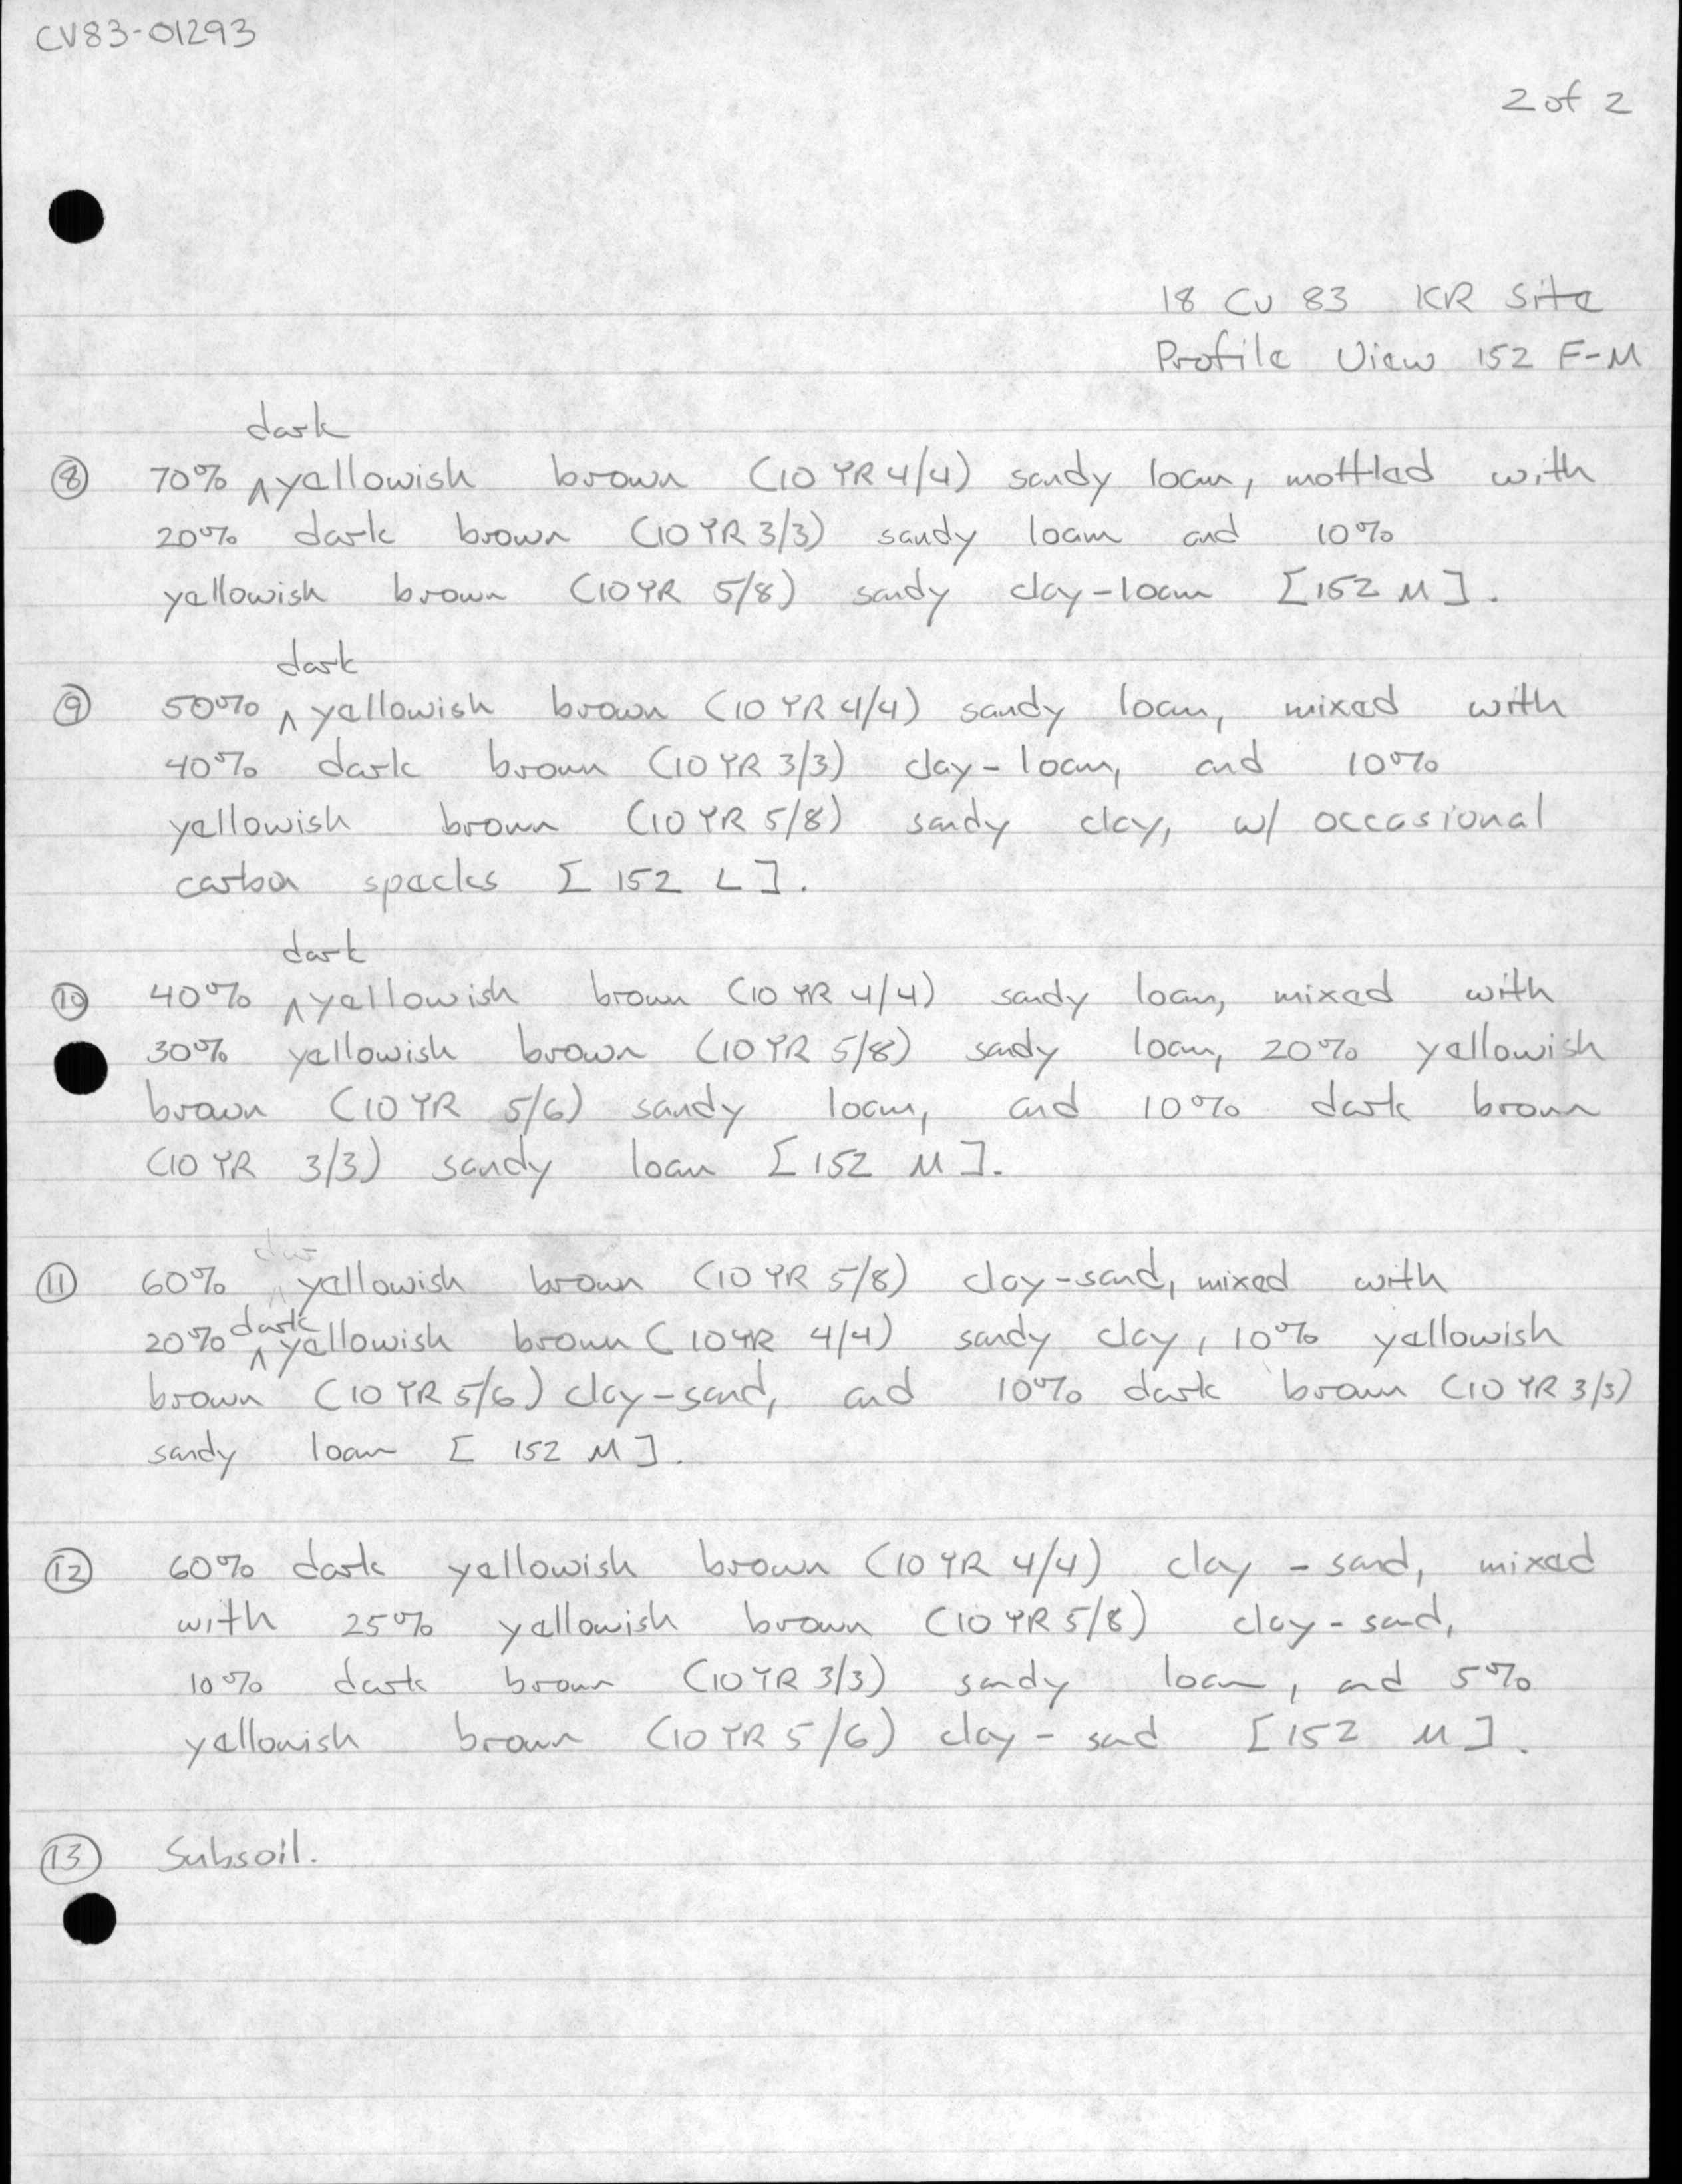 CV83-01293
2 of 2
18 CV 83 KR Site
Profile View 152 F-M
dark
⑧ 70% ^ yellowish brown (10 YR 4/4) sandy loam, mottled with
20% dark brown (10 YR 3/3) sandy loam and 10%
yellowish brown (10 YR 5/8) sandy clay-loam [152 M].
dark
⑨ 50% ^ yellowish brown (10 YR 4/4) sandy loam, mixed with
40% dark brown (10 YR 3/3) clay-loam, and 10%
yellowish brown (10 YR 5/8) sandy clay, w/ occasional
carbon specks [152 L].
dark
⑩ 40% ^ yellowish brown (10 YR 4/4) sandy loam, mixed with
30% yellowish brown (10 YR 5/8) sandy loam, 20% yellowish
brown (10 YR 5/6) sandy loam, and 10% dark brown
(10 YR 3/3) sandy loam [152 M].
⑪ 60% yellowish brown (10 YR 5/8) clay-sand, mixed with
dark
20% ^ yellowish brown (10 YR 4/4) sandy clay, 10% yellowish
brown (10 YR 5/6) clay-sand, and 10% dark brown (10 YR 3/3)
sandy loam [152 M].
⑫ 60% dark yellowish brown (10 YR 4/4) clay-sand, mixed
with 25% yellowish brown (10 YR 5/8) clay-sand,
10% dark brown (10 YR 3/3) sandy loam, and 5%
yellowish brown (10 YR 5/6) clay-sand [152 M].
⑬ Subsoil.